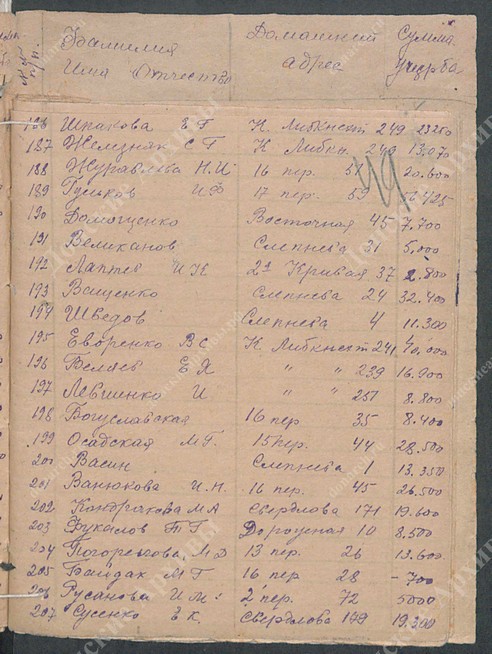 Фамилия Имя Отчество Домашний адрес Сумма ущерба
186 Шпакова Е Г К. Либкнехт 249 23250
187 Железняк С Г К Либкн. 249 13.070
188 Журавлева Н. И 16 пер. 57 20.600
189 Гуськов И Ф 17 пер. 59
190 Домощенко Восточная 45 7.700
191 Великанов Слепнева 31 5.000
192 Лаптев И К 2я Кривая 37 2.800
193 Ващенко Слепнева 24 32.400
194 Шведов Слепнева 4 11.300
195 Евдренко В С К Либкнехт 241 40.000
196 Беляев Е Я " " 239 16.900
197 Левшенко И " " 251 8.800
198 Богуславская 16 пер 35 8.400
199 Осадская М Г. 15 пер. 44 28.500
200 Васин Слепнева 1 13.350
201 Ванюкова И. Н. 16 пер. 45 26.500
202 Кондракова М А Свердлова 171 19.600
203 Т Г 10 8.500
204 М Д 13 пер. 26 13.600
205 Байдак М Г 16 пер 28 - 700
206 Русанова И М: 2 пер. 72 5000
207 Сусенко Е К. Свердлова 179 19.300